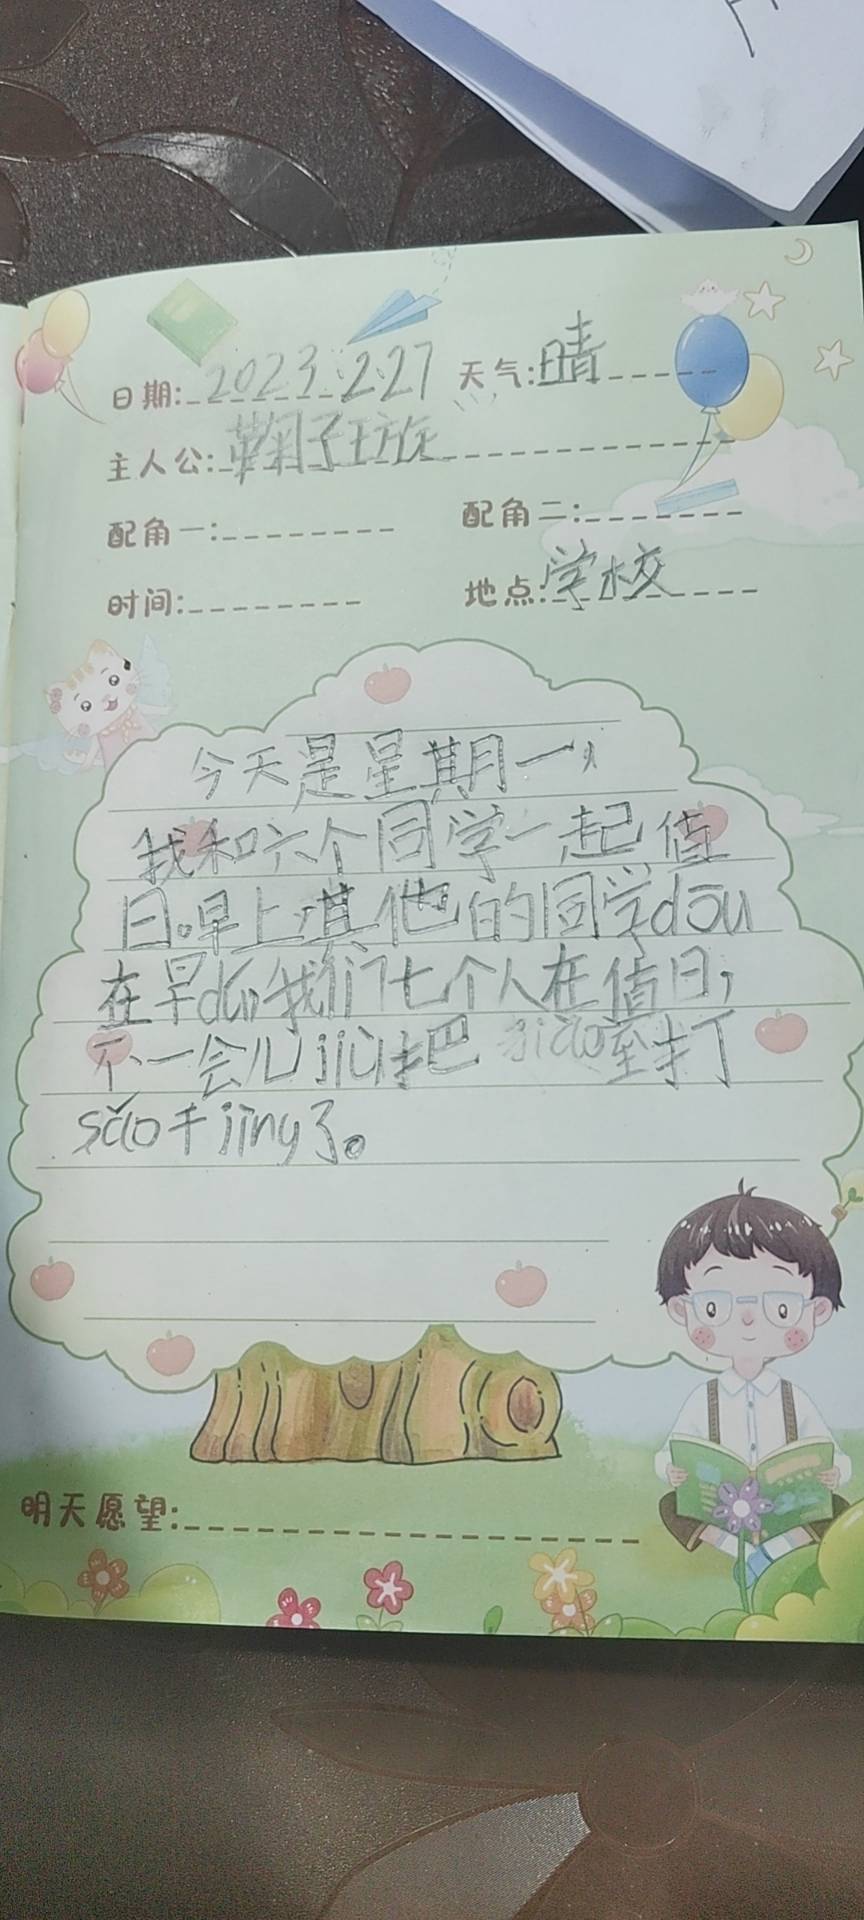 日期: 2023.2.27 天气: 晴
主人公: 鞠子璇
配角一: 配角二:
时间: 地点: 学校
今天是星期一，
我和六个同学一起值
日。早上其他的同学dōu
在早dú,我们七个人在值日，
不一会儿jiù把jiào室打
sǎo干jìng了。
明天愿望: